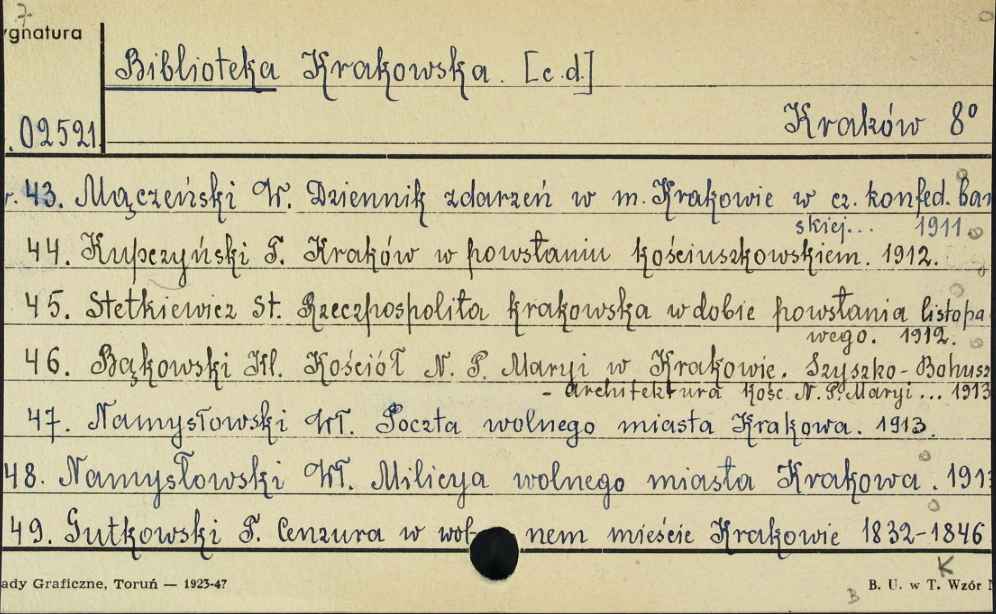 7
ygnatura
Biblioteka Krakowska. [c.d.]
02521.
Kraków 8º
43. Mączeński W. Dziennik zdarzeń w m. Krakowie w cz. konfed. bar
skiej... 1911
44. Kupczyński T. Kraków w powstaniu kościuszkowskiem. 1912.
45. Stetkiewicz St. Rzeczpospolita krakowska w dobie powstania listopa
wego. 1912.
46. Bąkowski Kl. Kościół N. P. Maryi w Krakowie. Szyszko-Bohusz
- architektura kośc. N. P. Maryi... 1913
47. Namysłowski Wł. Poczta wolnego miasta Krakowa. 1913.
48. Namysłowski Wł. Milicya wolnego miasta Krakowa. 191
49. Gutkowski T. Cenzura w wol- nem mieście Krakowie 1832-1846
K
ady Graficzne, Toruń — 1923-47
B
B. U. w T. Wzór